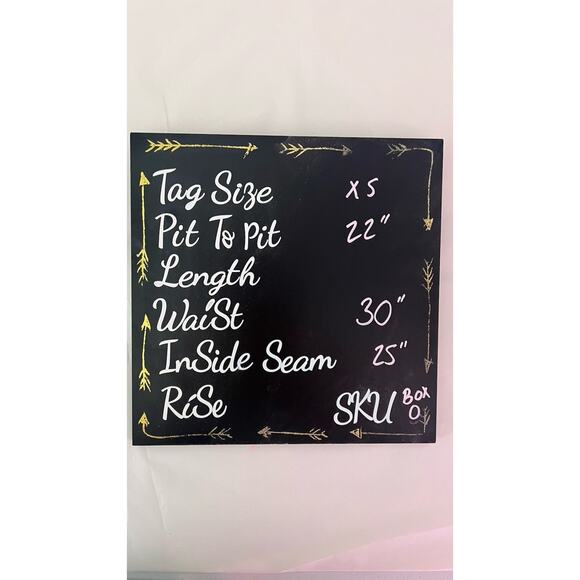 Tag Size XS
Pit To Pit 22"
Length
WaiSt 30"
InSide Seam 25"
RiSe
SKU Box O